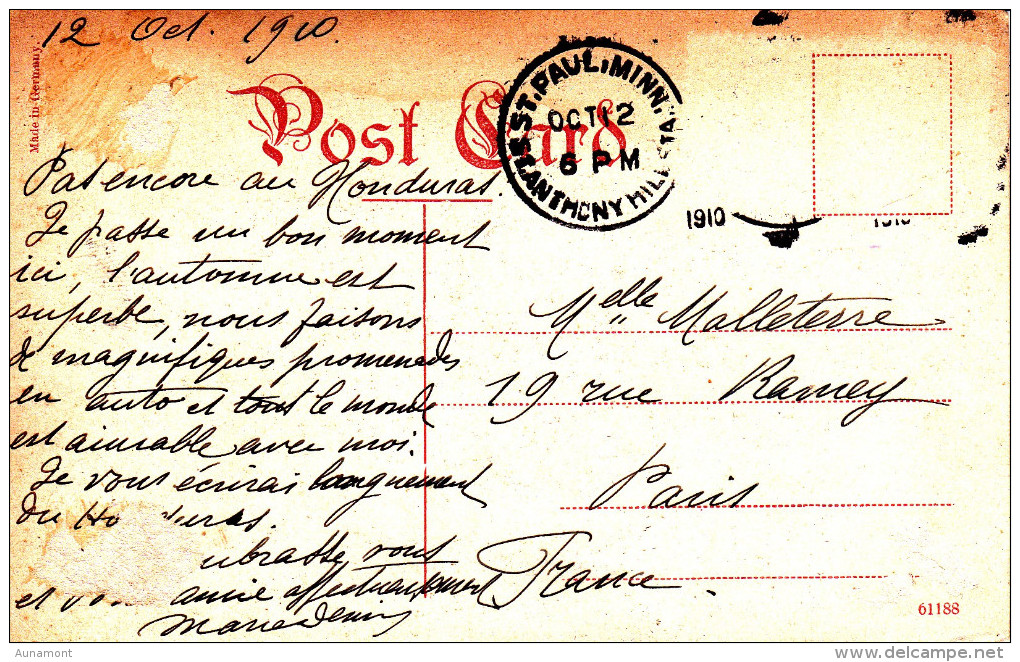 12 Oct. 1910.
Made in Germany.
Post Card
ST. PAUL, MINN. STA.
ST. ANTHONY HILL
OCT 12
6 PM
1910
1910
Pas encore au Honduras.
Je passe un bon moment
ici, l'automne est
superbe, nous faisons
de magnifiques promenades
en auto et tout le monde
est aimable avec moi.
Je vous écrirai longuement
du Ho uras.
mbrasse vous
et vo amie affectueusement
Marie
Melle Malleterre
19 rue Ramey
Paris
France.
61188
Aunamont
delcampe.net